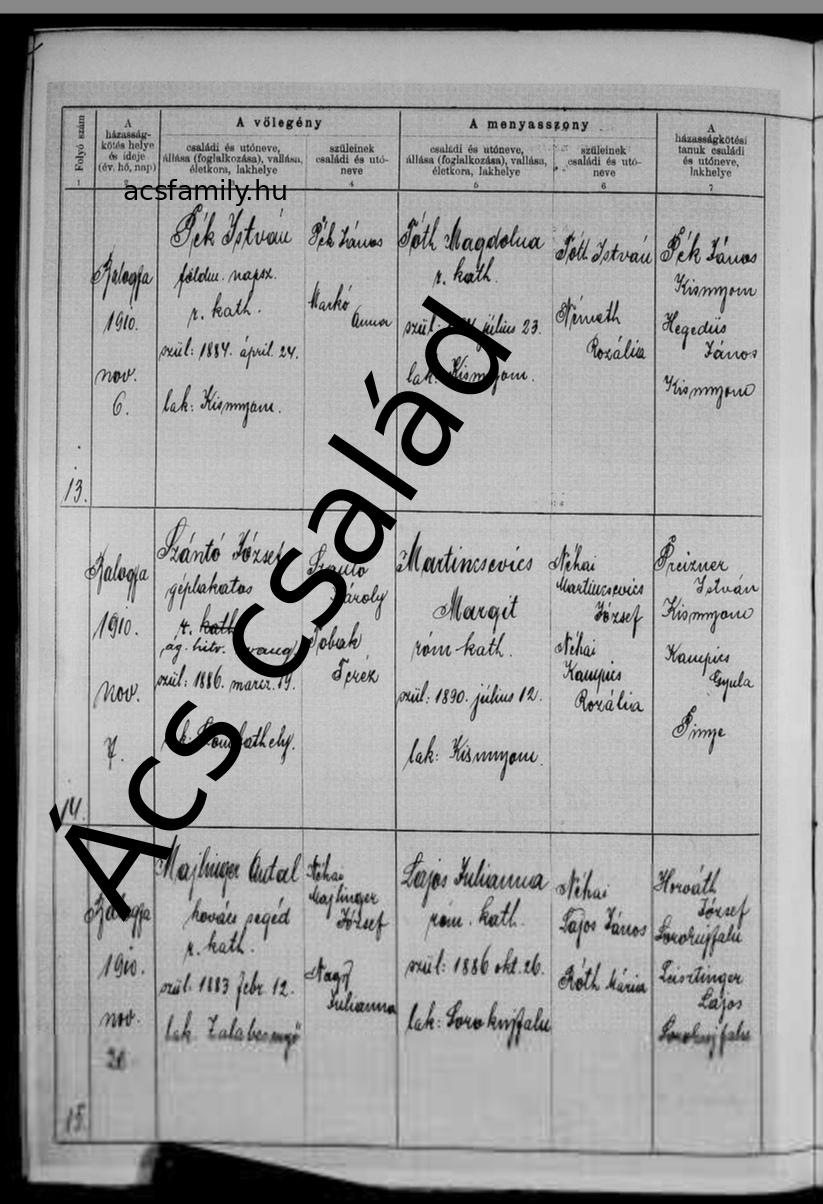 Folyó szám
A házasság-
kötés helye
és ideje
(év, hó, nap)
A vőlegény
családi és utóneve,
állása (foglalkozása), vallása,
életkora, lakhelye
szüleinek
családi és utó-
neve
A menyasszony
családi és utóneve,
állása (foglalkozása), vallása,
életkora, lakhelye
szüleinek
családi és utó-
neve
A
házasságkötési
tanuk családi
és utóneve,
lakhelye
1
4
5
6
7
acsfamily.hu
13.
Balogfa
1910.
nov.
6.
Pék István
földm. napsz.
r. kath.
szül: 1884. ápril. 24.
lak: Kisunyom.
Pék János
Markó
Anna
Tóth Magdolna
r. kath.
szül: július 23.
lak: Kisunyom.
Tóth István
Németh
Rozália
Pék János
Kisunyom
Hegedüs
János
Kisunyom
14.
Balogfa
1910.
nov.
7.
Szántó József
géplakatos
r. kath
ág. hitv. evang.
szül: 1886. márcz. 19.
lak: Szombathely.
Szántó
Károly
Teréz
Martincsevics
Margit
róm. kath.
szül: 1890. július 12.
lak: Kisunyom.
Néhai
Martincsevics
József
Néhai
Kampics
Rozália
Preizner
István
Kisunyom
Kampics
Gyula
15.
Balogfa
1910.
nov.
Majlinger Antal
kovács segéd
r. kath.
szül. 1883 febr. 12.
lak. Zalabesenyő
Néhai
Majlinger
József
Nagy
Julianna
Lajos Julianna
róm. kath.
szül: 1886 okt. 26.
lak: Sorokujfalu
Néhai
Lajos János
Róth Mária
Horváth
József
Sorokujfalu
Leisztinger
Lajos
Sorokujfalu
Ács család